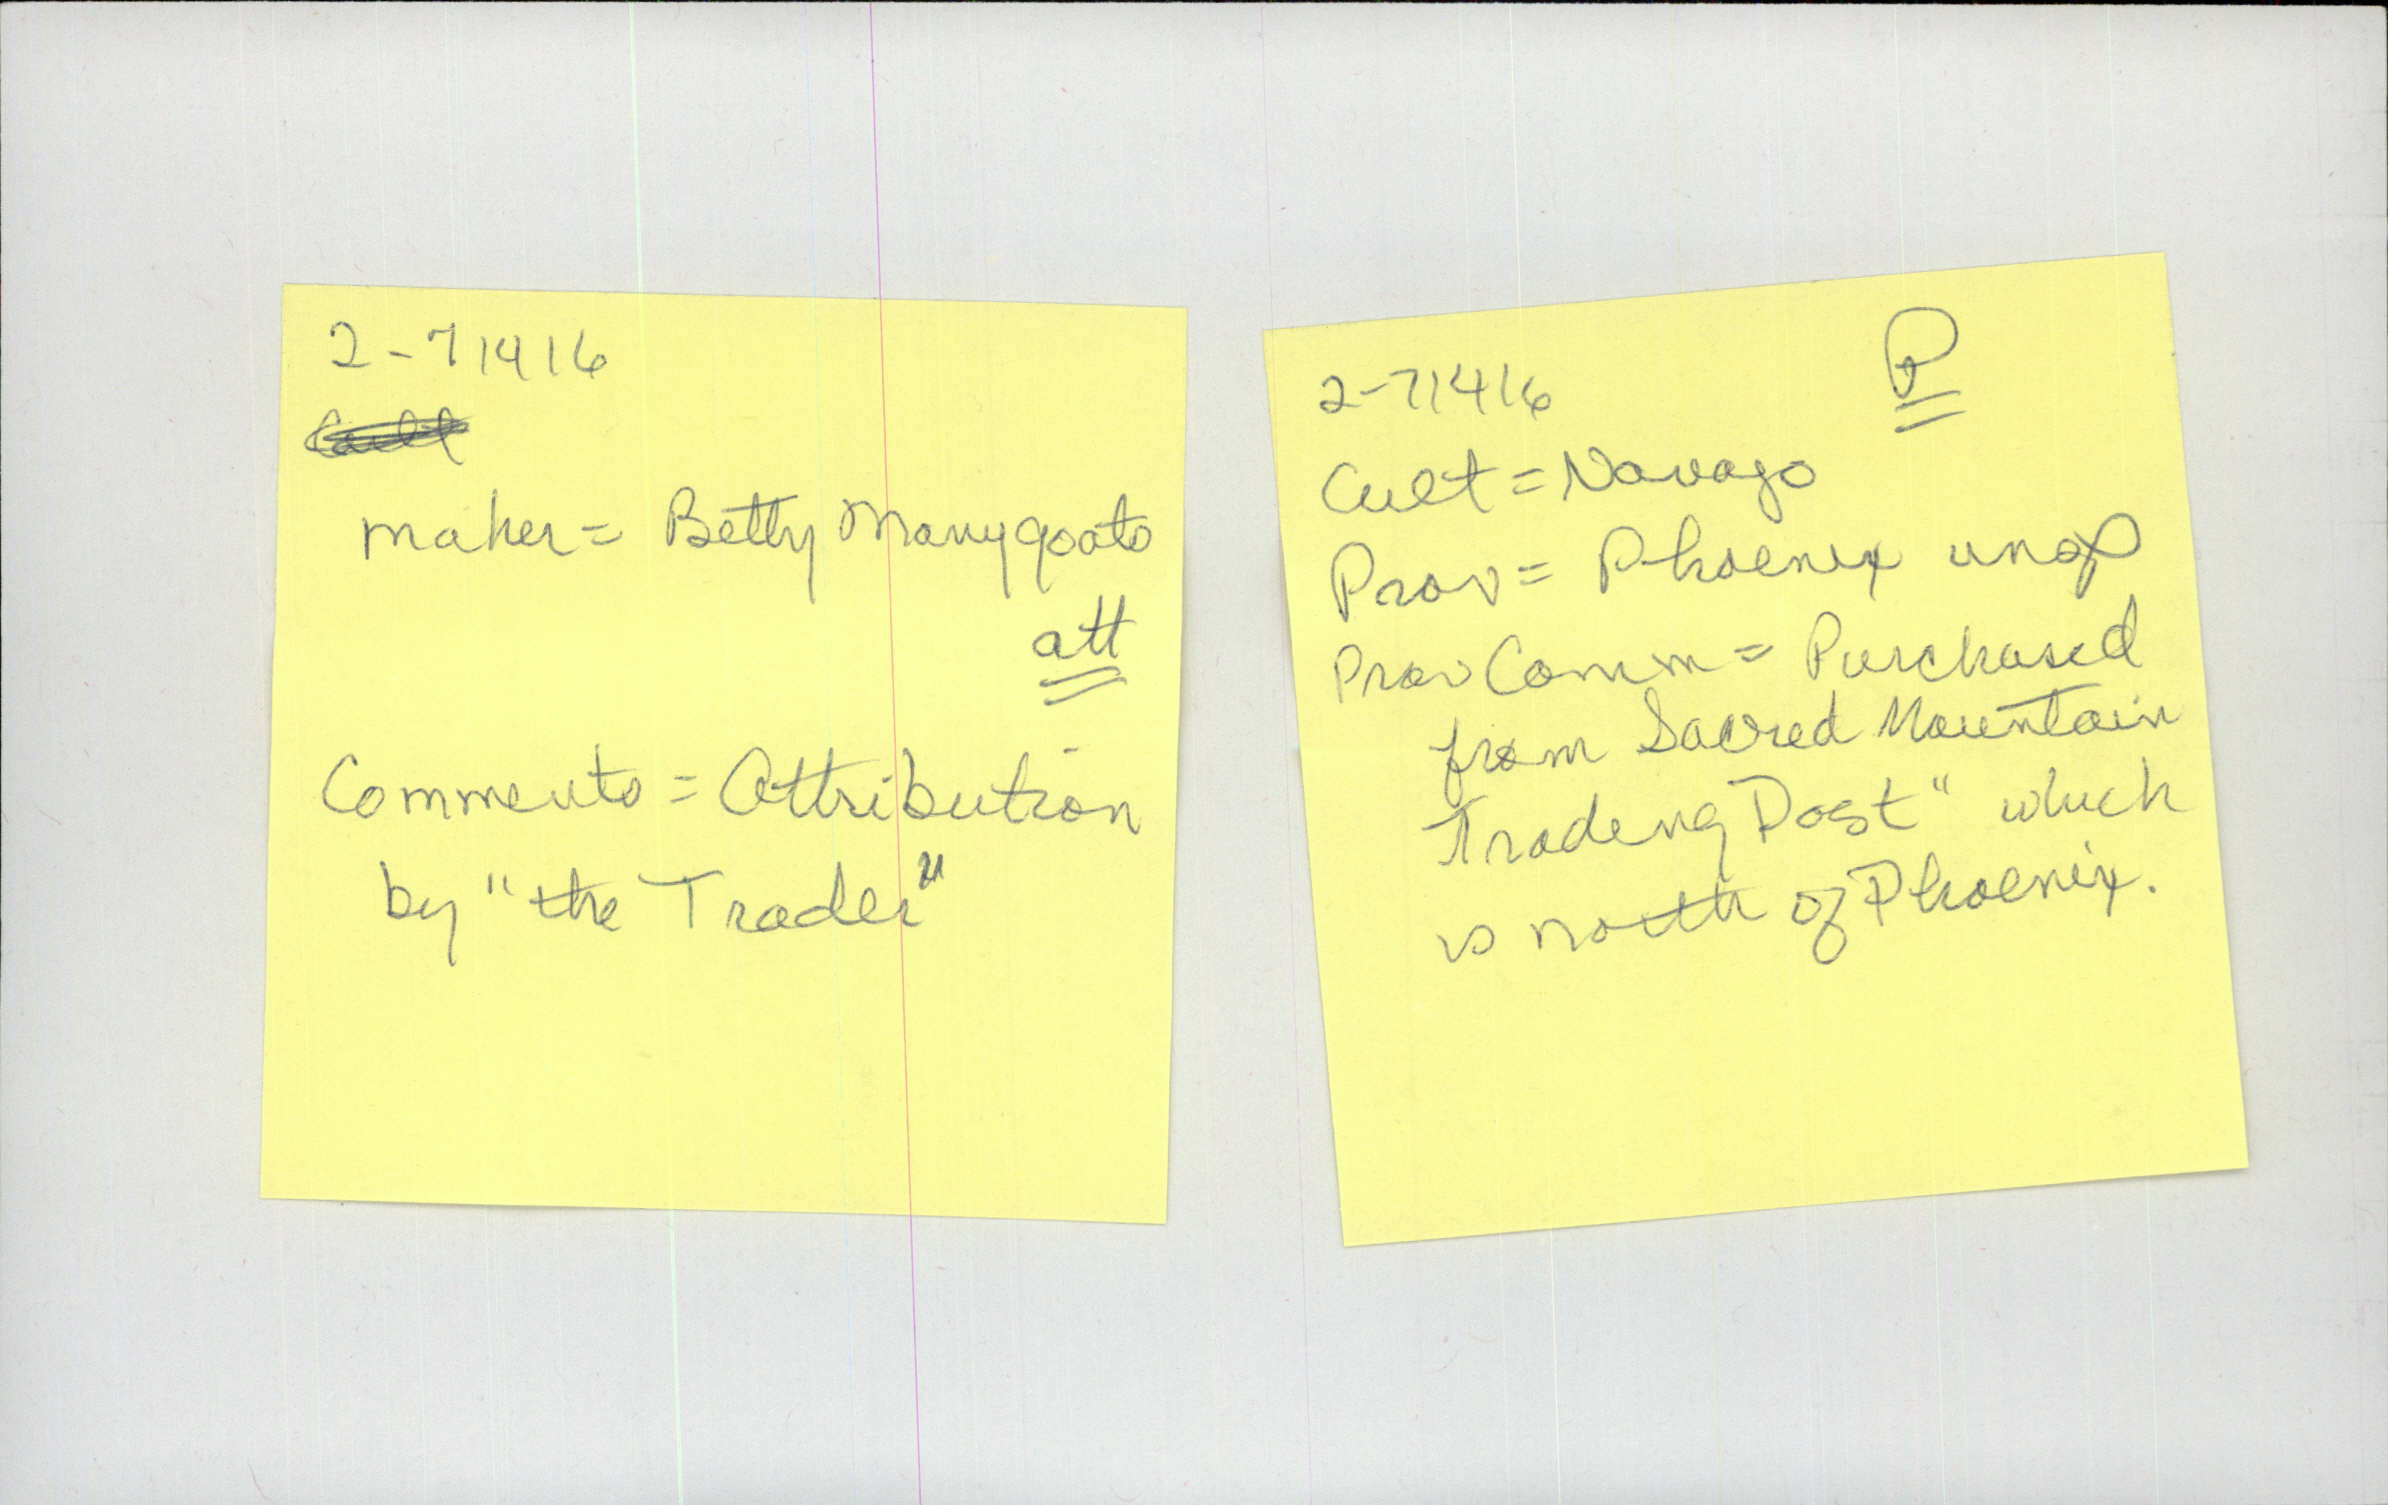 2-71416
maker = Betty Manygoats
att
Comments = Attribution
by "the Trader"
2-71416
P
Cult = Navajo
Prov = Phoenix
Prov Comm = Purchased
from Sacred Mountain
Trading Post" which
is north of Phoenix.